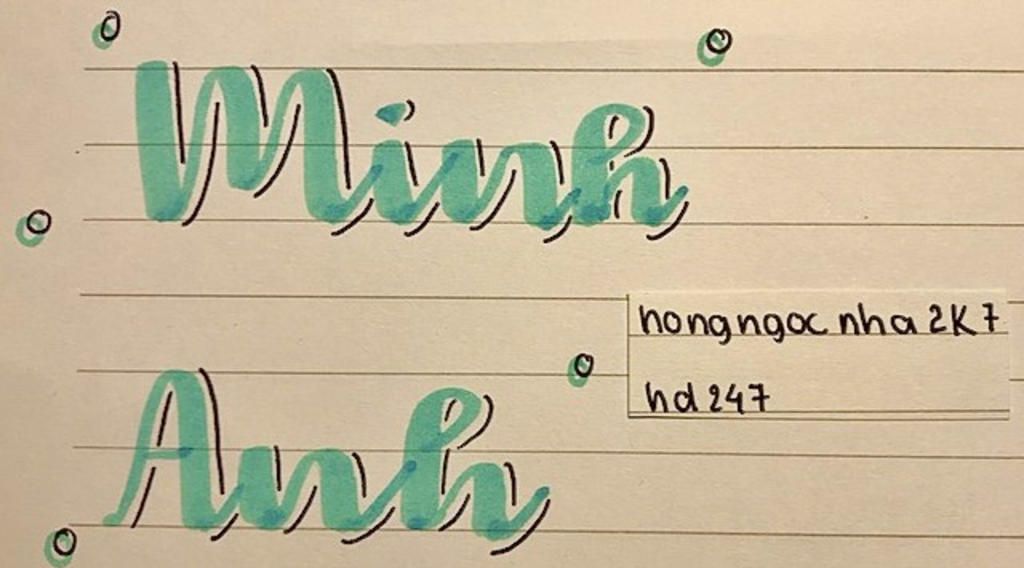 Minh
Anh
hongngoc nha 2K7
hd 247